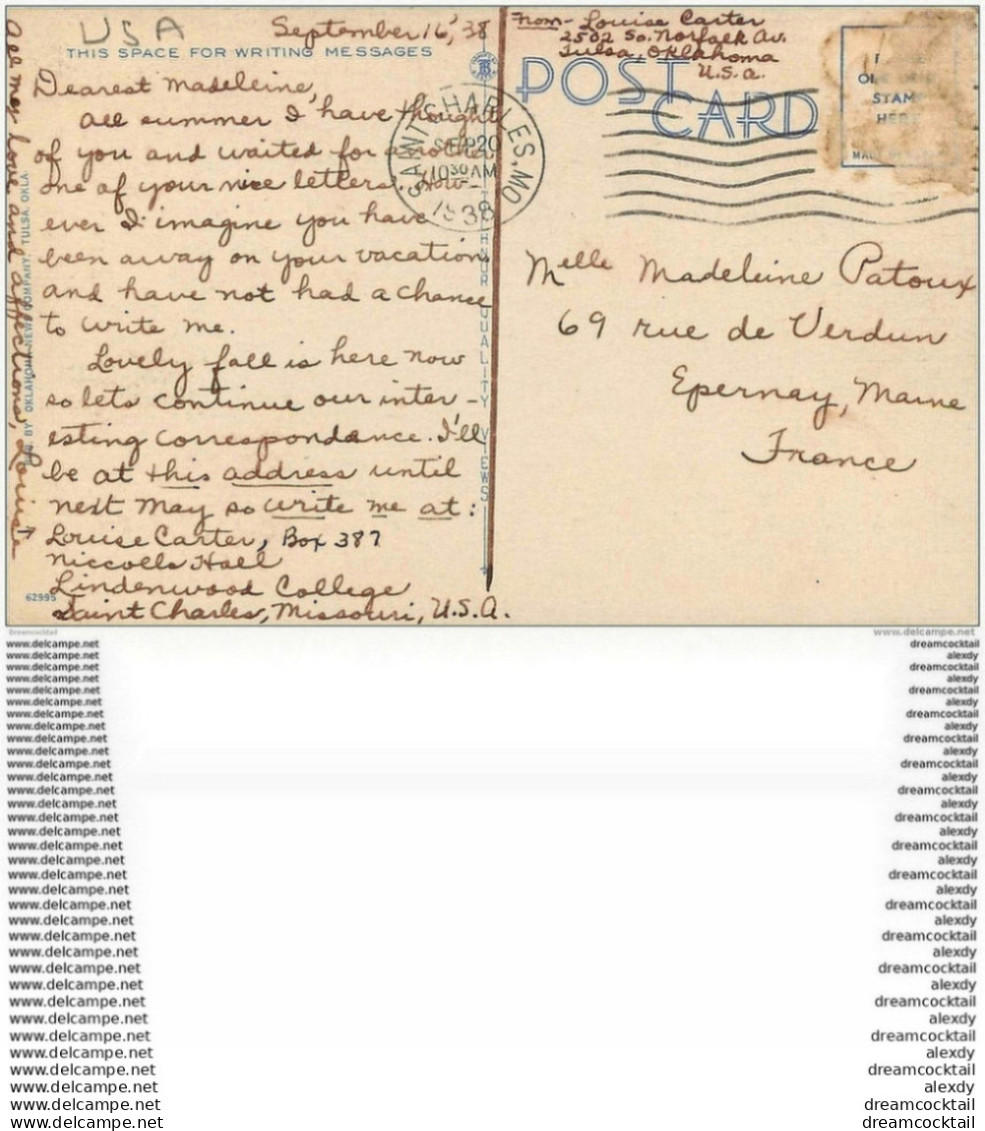 USA
September 16, '38
THIS SPACE FOR WRITING MESSAGES
Dearest Madeleine,
All summer I have thought
of you and waited for another
one of your nice letters. How-
ever I imagine you have
been away on your vacation
and have not had a chance
to write me.
Lovely fall is here now
so lets continue our inter-
esting correspondance. I'll
be at this address until
next May so write me at:
Louise Carter, Box 387
Niccolls Hall
Lindenwood College
Saint Charles, Missouri, U.S.A.
All my love and affections, Louise
BY OKLAHOMA NEWS COMPANY, TULSA, OKLA.
62995
QUALITY VIEWS
SAINT CHARLES, MO
SEP 20
10 30 AM
1938
From- Louise Carter
2502 So. Norfolk Av.
Tulsa, Oklahoma
U.S.A.
POST
CARD
ONE
STAMP
HERE
Melle Madeleine Patoux
69 rue de Verdun
Epernay, Marne
France
Dreamcocktail
www.delcampe.net
www.delcampe.net dreamcocktail
www.delcampe.net alexdy
www.delcampe.net dreamcocktail
www.delcampe.net alexdy
www.delcampe.net dreamcocktail
www.delcampe.net alexdy
www.delcampe.net dreamcocktail
www.delcampe.net alexdy
www.delcampe.net dreamcocktail
www.delcampe.net alexdy
www.delcampe.net dreamcocktail
www.delcampe.net alexdy
www.delcampe.net dreamcocktail
www.delcampe.net alexdy
www.delcampe.net dreamcocktail
www.delcampe.net alexdy
www.delcampe.net dreamcocktail
www.delcampe.net alexdy
www.delcampe.net dreamcocktail
www.delcampe.net alexdy
www.delcampe.net dreamcocktail
www.delcampe.net alexdy
www.delcampe.net dreamcocktail
www.delcampe.net alexdy
www.delcampe.net dreamcocktail
www.delcampe.net alexdy
www.delcampe.net dreamcocktail
www.delcampe.net alexdy
www.delcampe.net dreamcocktail
www.delcampe.net alexdy
www.delcampe.net dreamcocktail
www.delcampe.net alexdy
www.delcampe.net dreamcocktail
www.delcampe.net alexdy
www.delcampe.net dreamcocktail
www.delcampe.net alexdy
www.delcampe.net dreamcocktail
www.delcampe.net dreamcocktail